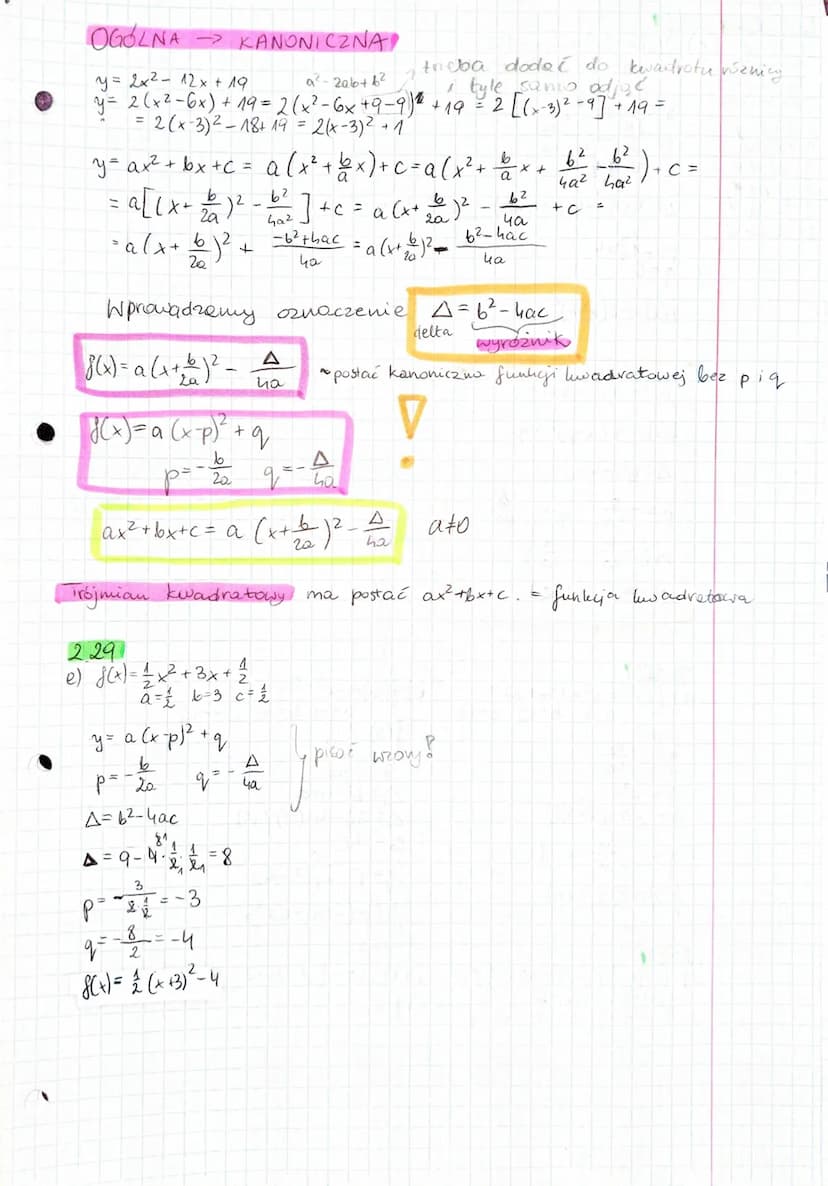 OGÓLNA → KANONICZNA
trzeba dodać do kwadratu różnicy
i tyle samo odjąć
y = 2x² - 12x + 19   a² - 2ab + b²
y = 2(x² - 6x) + 19 = 2(x² - 6x + 9 - 9) + 19 = 2[(x-3)² - 9] + 19 =
= 2(x-3)² - 18 + 19 = 2(x-3)² + 1
y = ax² + bx + c = a(x² + b/a x) + c = a(x² + b/a x + b²/4a² - b²/4a²) + c =
= a[(x + b/2a)² - b²/4a²] + c = a(x + b/2a)² - b²/4a + c =
= a(x + b/2a)² + -b²+4ac/4a = a(x + b/2a)² - b²-4ac/4a
Wprowadzamy oznaczenie Δ = b² - 4ac
delta wyróżnik
f(x) = a(x + b/2a)² - Δ/4a ~ postać kanoniczna funkcji kwadratowej bez p i q
f(x) = a(x-p)² + q !
p = -b/2a   q = -Δ/4a
ax² + bx + c = a(x + b/2a)² - Δ/4a   a≠0
Trójmian kwadratowy ma postać ax² + bx + c. = funkcja kwadratowa
2.29
e) f(x) = 1/2 x² + 3x + 1/2
a = 1/2  b = 3  c = 1/2
y = a(x-p)² + q
pisać wzory!
p = -b/2a   q = -Δ/4a
Δ = b² - 4ac
Δ = 9 - 4 · 1/2 · 1/2 = 8
p = -3/2·1/2 = -3
q = -8/2 = -4
f(x) = 1/2 (x+3)² - 4